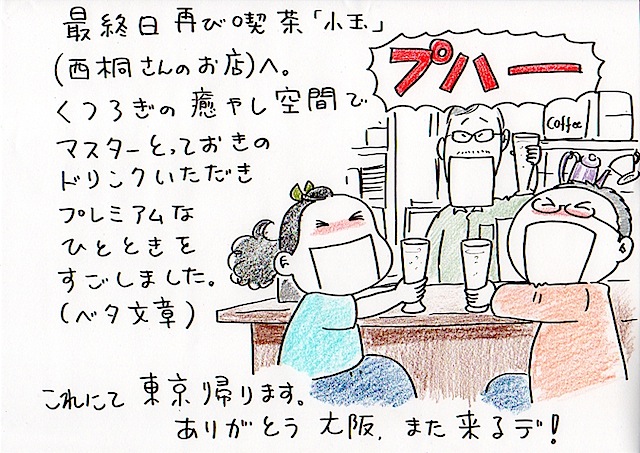 最終日 再び喫茶「小玉」
(西桐さんのお店)へ。
くつろぎの 癒やし空間で
マスターとっておきの
ドリンクいただき
プレミアムな
ひとときを
すごしました。
(ベタ文章)
プハー
Coffee
これにて 東京帰ります。
ありがとう 大阪, また来るデ!